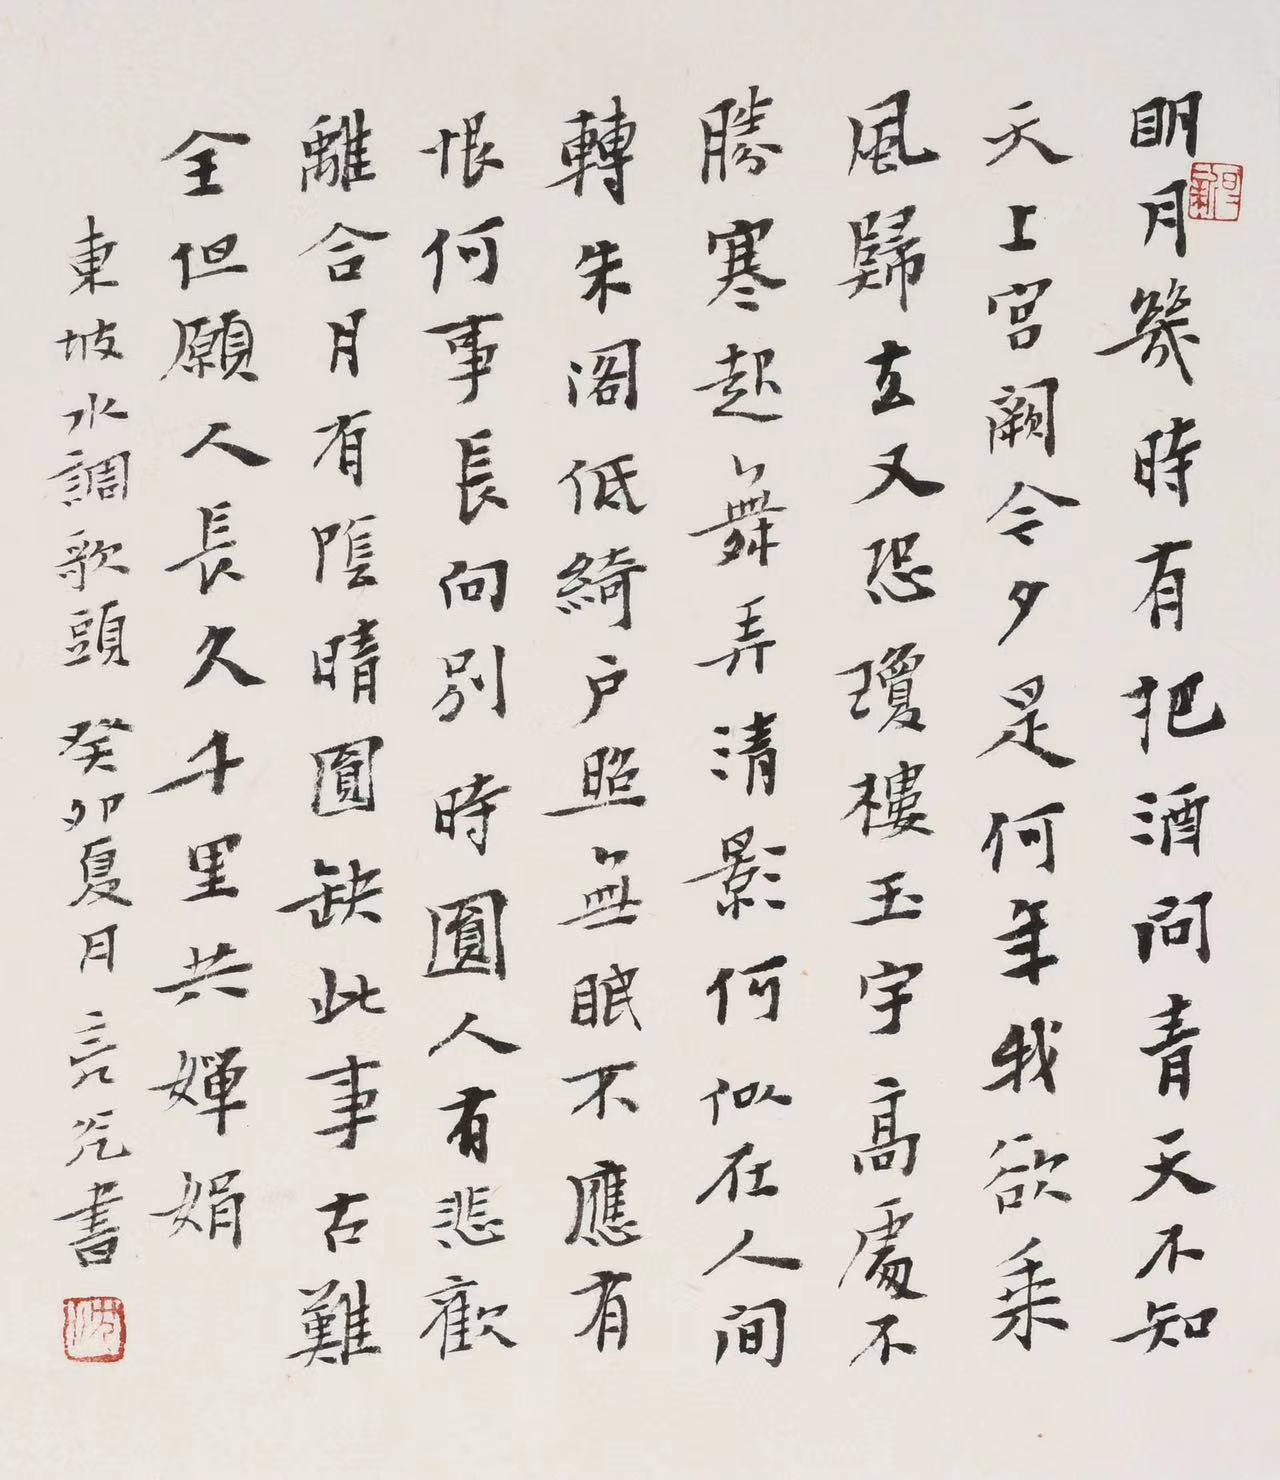 明月幾時有把酒問青天不知
天上宮闕今夕是何年我欲乘
風歸去又恐瓊樓玉宇高處不
勝寒起舞弄清影何似在人間
轉朱閣低綺户照無眠不應有
恨何事長向別時圓人有悲歡
離合月有陰晴圓缺此事古難
全但願人長久千里共嬋娟
東坡水調歌頭 癸卯夏月 亮 書